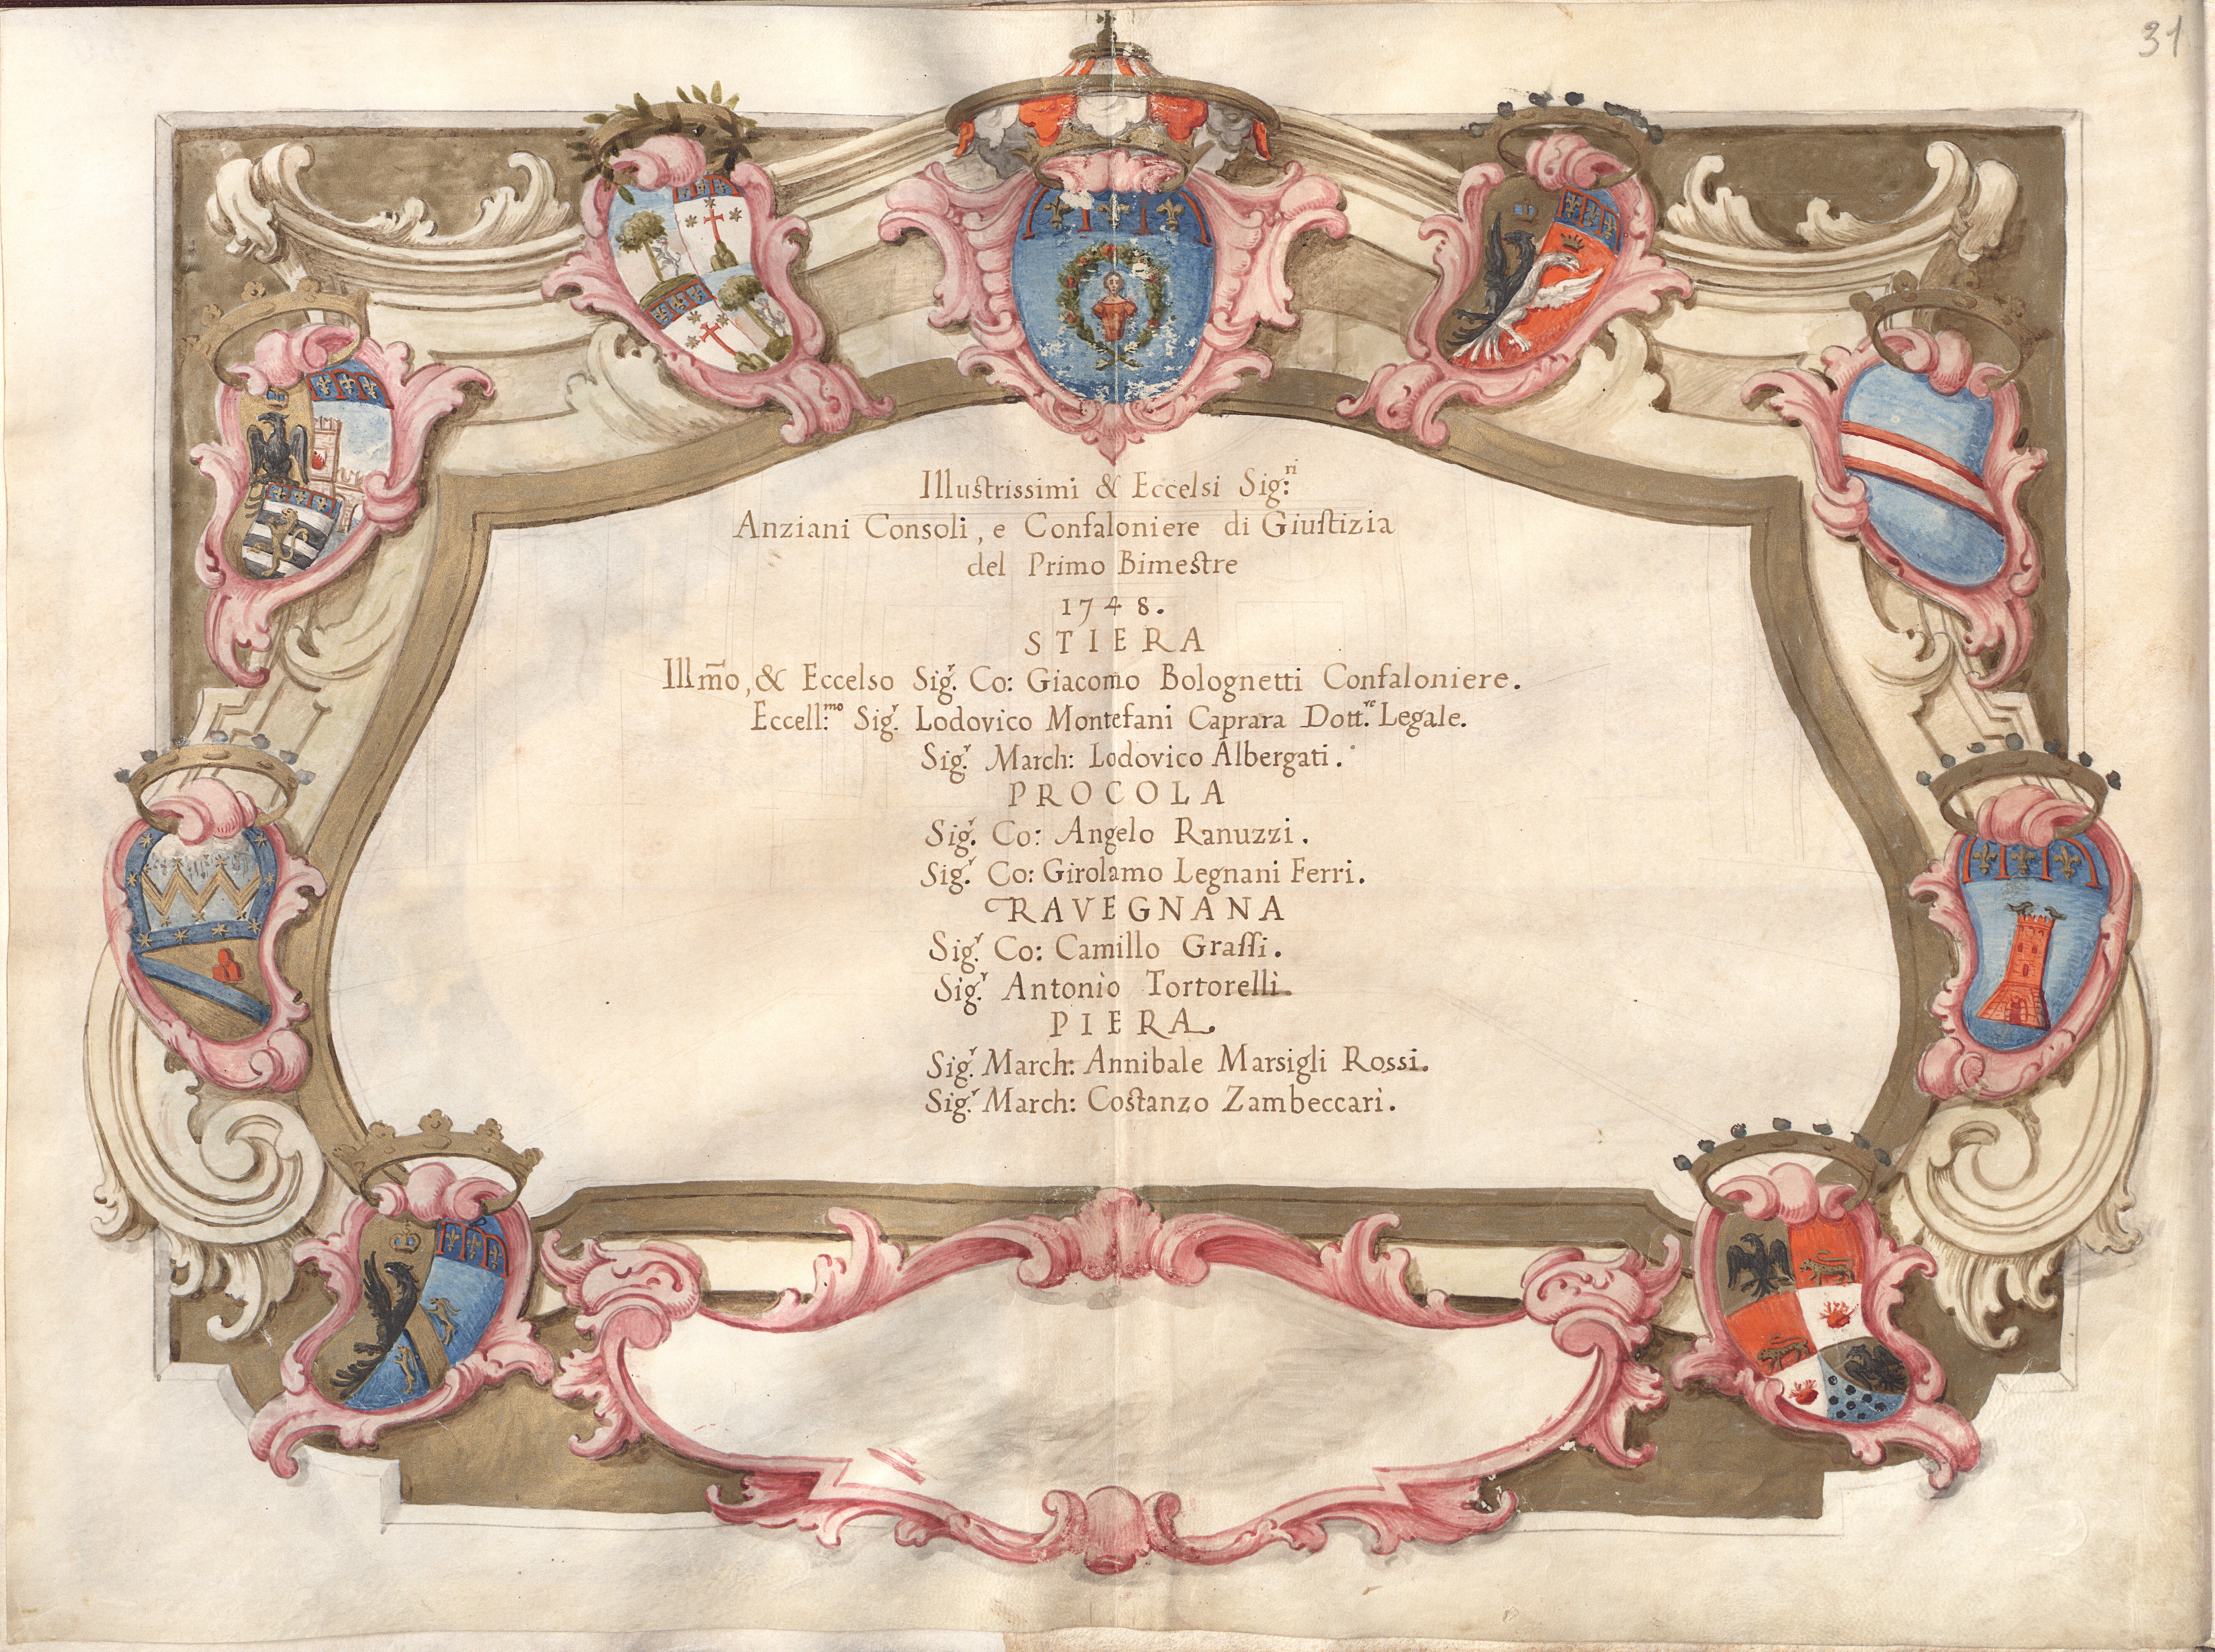 31
Illustrissimi & Eccelsi Sig:ri
Anziani Consoli, e Confaloniere di Giustizia
del Primo Bimestre
1748.
STIERA
Illm̃o, & Eccelso Sig.r Co: Giacomo Bolognetti Confaloniere.
Eccell:mo Sig.r Lodovico Montefani Caprara Dott.re Legale.
Sig.r March: Lodovico Albergati.
PROCOLA
Sig.r Co: Angelo Ranuzzi.
Sig.r Co: Girolamo Legnani Ferri.
RAVEGNANA
Sig.r Co: Camillo Grassi.
Sig.r Antonio Tortorelli.
PIERA.
Sig.r March: Annibale Marsigli Rossi.
Sig.r March: Costanzo Zambeccari.